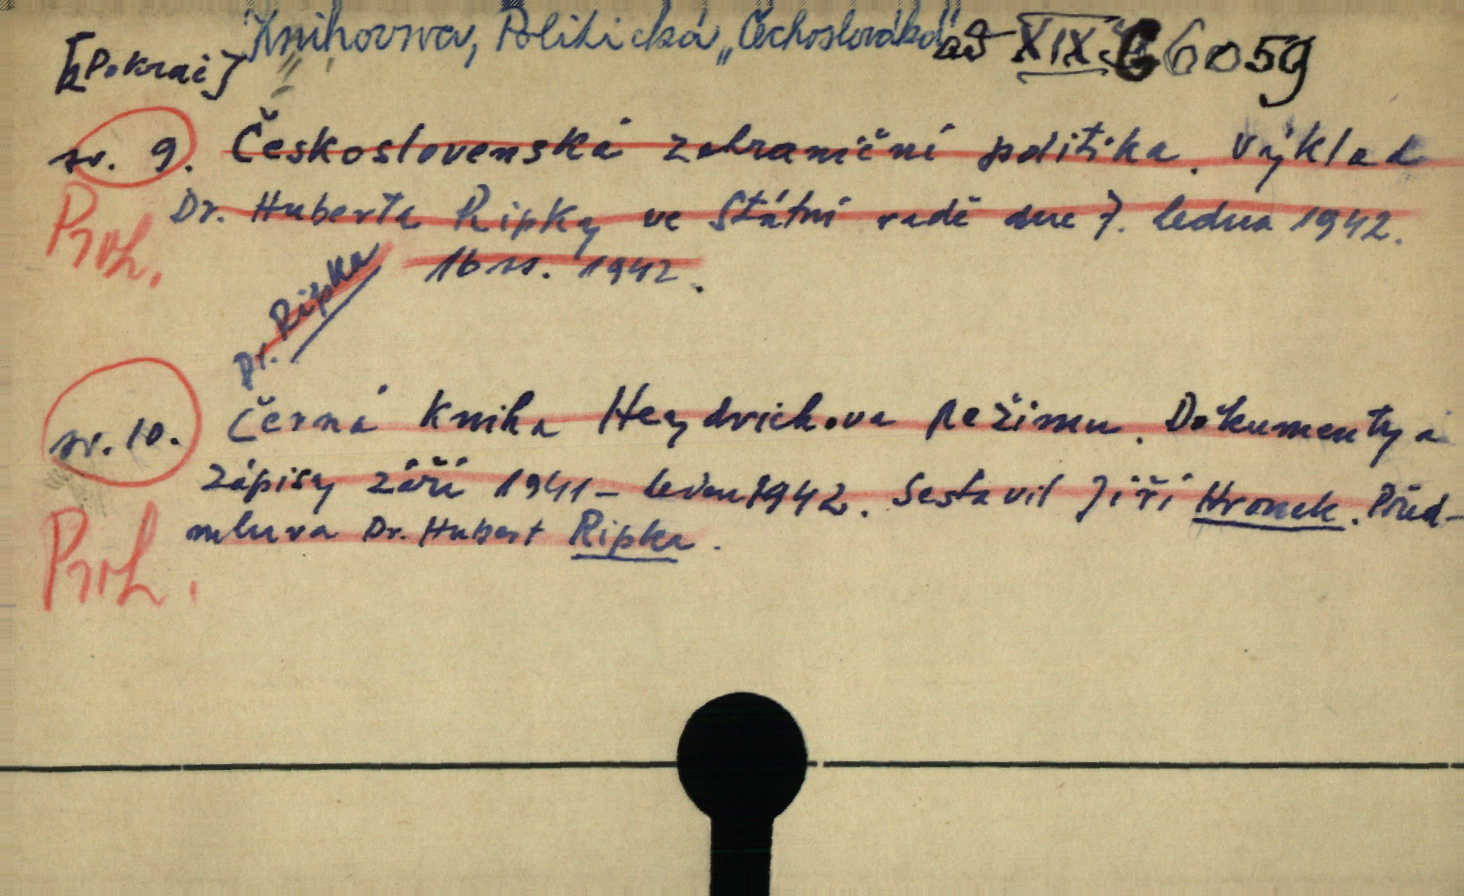 [Pokrač] Knihovna, Politická „Čechoslováka" XIX G 6059
sv. 9. Československá zahraniční politika. Výklad
Proh. Dr. Huberta Ripky ve Státní radě dne 7. ledna 1942.
16 ss. 1942.
Dr. Ripka
sv. 10. Černá kniha Heydrichova režimu. Dokumenty a
zápisy září 1941 – leden 1942. Sestavil Jiří Hronek. Před-
Proh. mluva Dr. Hubert Ripka.